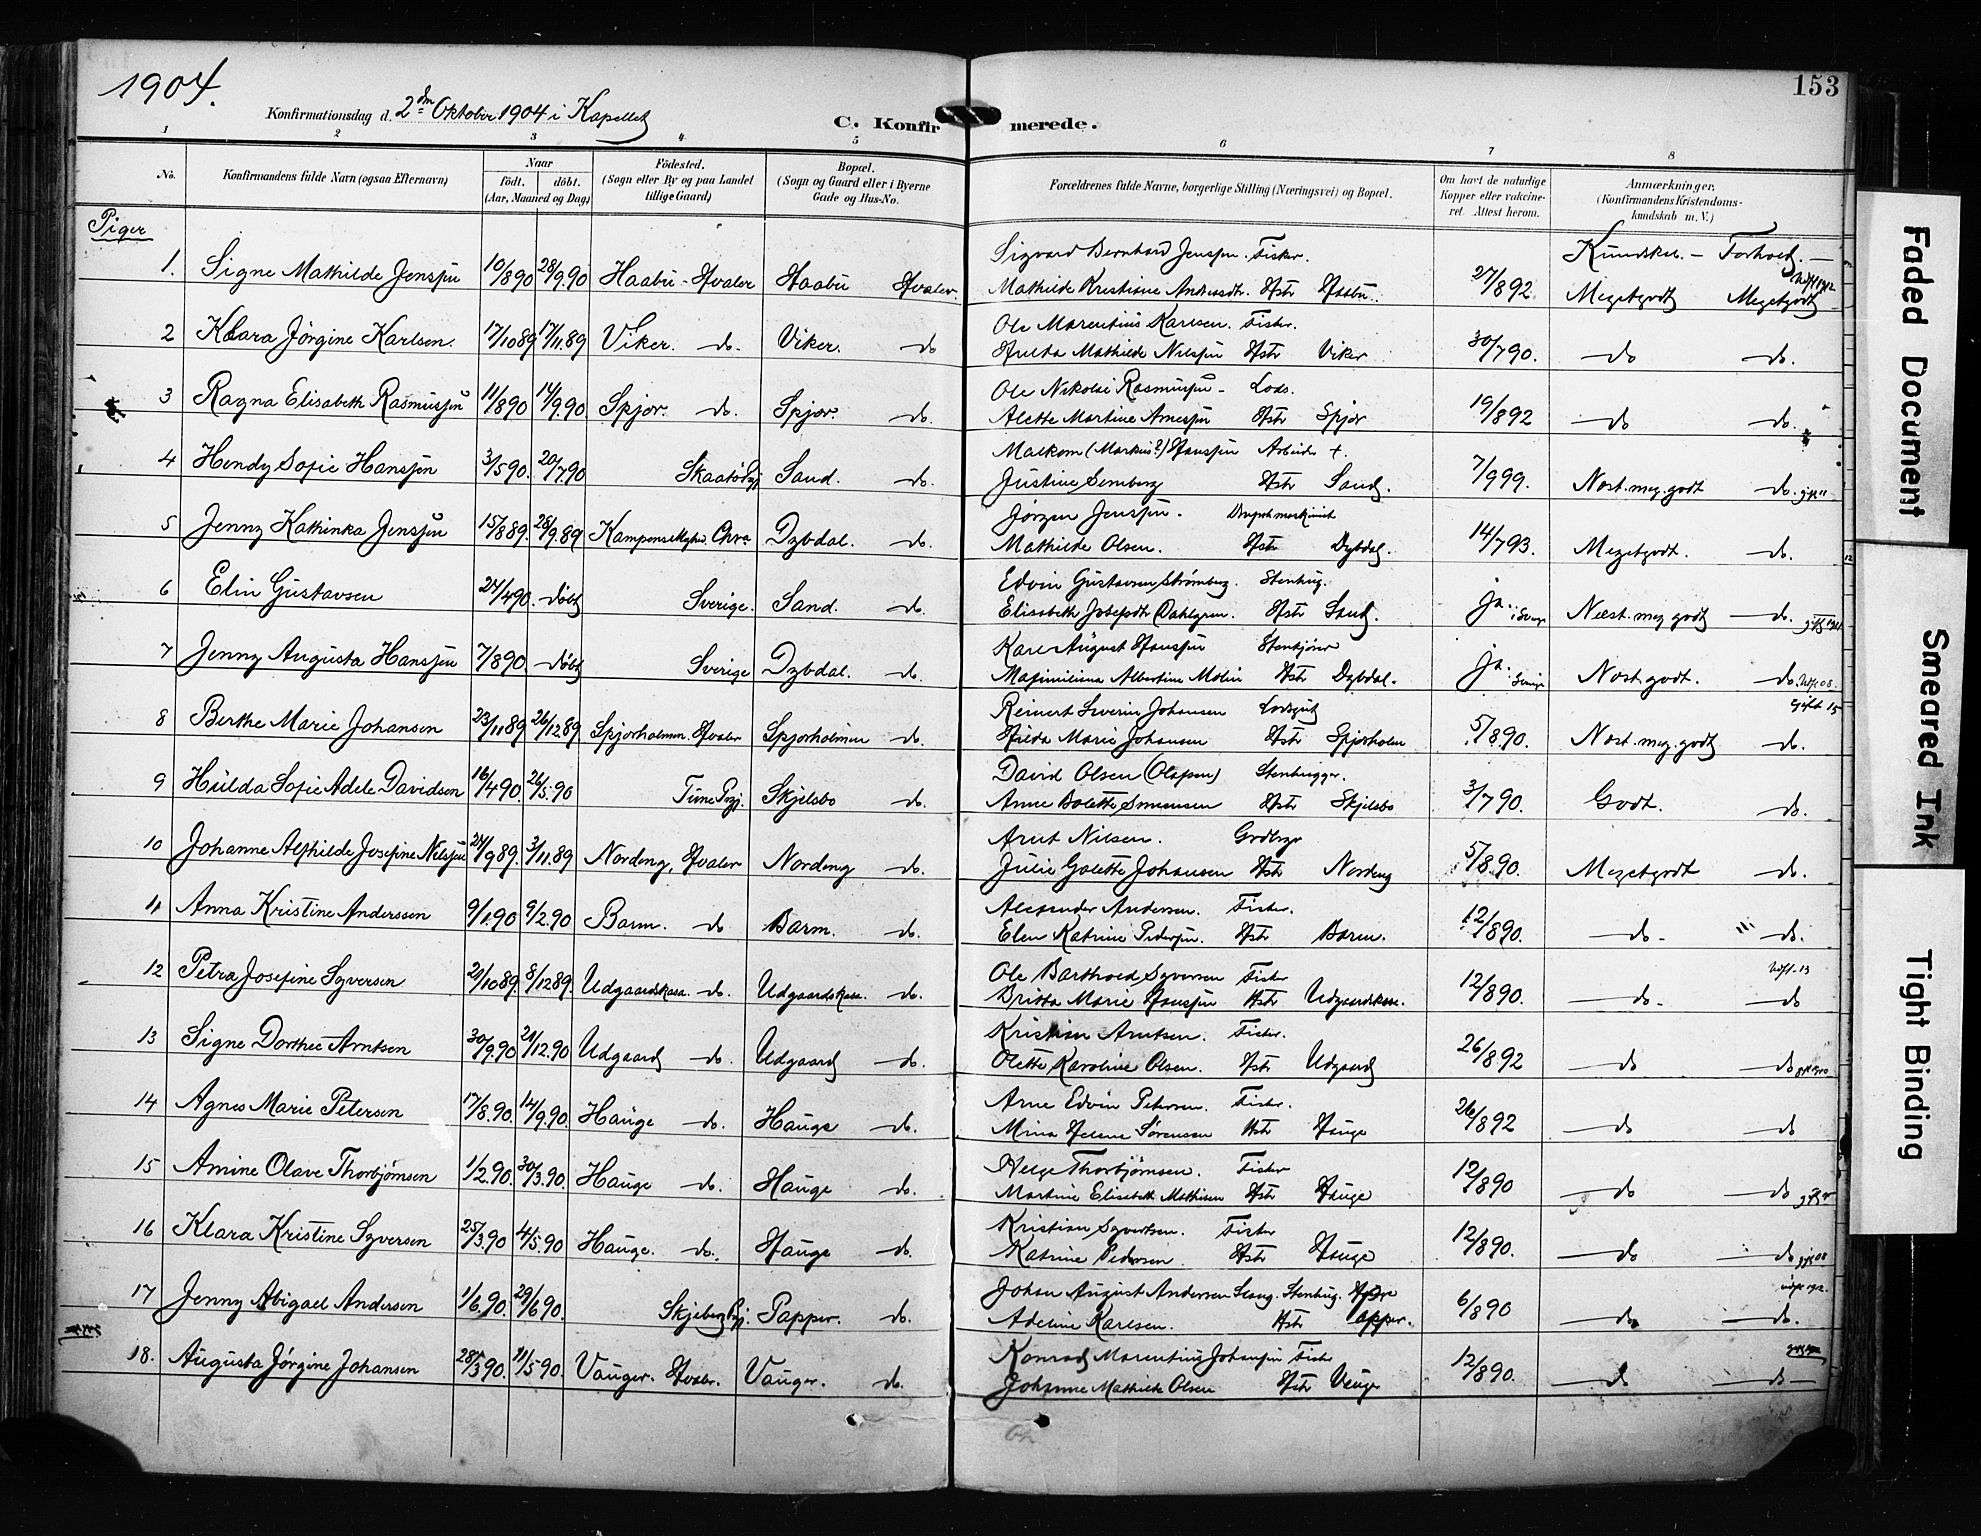 1904.
153
Konfirmationsdag d. 2den Oktober 1904 i Kapellet
C. Konfirmerede.
1 2 3 4 5 6 7 8
No.
Konfirmandens fulde Navn (ogsaa Efternavn)
Naar
født. døbt.
(Aar, Maaned og Dag)
Fødested.
(Sogn eller By og paa Landet
tillige Gaard)
Bopæl.
(Sogn og Gaard eller i Byerne
Gade og Hus-No.
Forældrenes fulde Navne, borgerlige Stilling (Næringsvei) og Bopæl.
Om havt de naturlige
Kopper eller vakcine-
ret. Attest herom.
Anmærkninger.
(Konfirmandens Kristendoms-
kundskab m. V.)
Piger
Kundskab. — Forhold. —
Sigvard Bernhard Jenssen. Fisker.
1. Signe Mathilde Jenssen 10/8 90 28/9.90 Haabu - Hvaler Haabu Hvaler. Mathilde Kristiane Andersdtr. Hstr Haabu. 27/8 92 Megetgodt Megetgodt
Ole Marentius Karlsen. Fisker.
2 Klara Jørgine Karlsen. 17/10 89 17/11.89 Viker. do. Viker. do Hulda Mathilde Nilssen Hstr Viker 30/7 90. do do.
Ole Nikolai Rasmussen - Lods.
3 Ragna Elisabeth Rasmussen 11/8 90 14/9.90 Spjær. do. Spjær. do. Alette Martine Arnessen Hstr Spjær 19/8 92 do do.
Malkom (Markus?) Hanssen Arbeider +.
4 Hendy Sofie Hanssen 3/5 90. 20/7 90 Skaatø Pgj Sand. do. Justine Semberg Hstr Sand. 7/9 99. Næst. meg. godt do.
Jørgen Jenssen.
5 Jenny Kathinka Jenssen 15/8 89. 28/9.89 Kampens Meghed. Chra. Dybdal. do. Mathilde Olsen. Hstr Dybdal. 14/7 93. Megetgodt. do.
Edvin Gustavsen Strømberg. Stenhug.
6 Elin Gustavsen 24/4 90. døbt Sverige. Sand. do. Elisabeth Josefsdtr Dahlgren. Hstr Sand. ja. i Sverige Næst. meg godt do.
Karl August Hanssen Stenkjører
7 Jenny Augusta Hanssen 7/8 90. døbt Sverige Dybdal. do. Maximiliana Albertine Molin Hstr Dybdal. ja. Sverige Næst. godt. do.
Gift 15
Reinert Severin Johansen Lodsgut
8 Berthe Marie Johansen 23/11 89 26/12 89. Spjærholmen. Hvaler Spjærholmen do. Hilda Marie Johansen Hstr Spjærholm 5/8 90. Næst. meg. godt do.
David Olsen (Olafsen) Stenhugger.
9 Hulda Sofie Adele Davidsen 16/4 90. 26/5.90 Tune Pgj. Skjelsbo do. Anne Bolette Simensen Hstr Skjelsbo 3/7 90. Godt. do.
Arnt Nilsen. Grdbrgr
10 Johanne Alfhilde Josefine Nilssen 24/9 89. 3/11.89 Nordeng, Hvaler Nordeng do. Julie Galette Johansen Hstr Nordeng 5/8 90. Megetgodt do.
Alexander Andersen. Fisker.
11 Anna Kristine Anderssen 9/1.90 9/2.90 Barm. do Barm. do. Elen Katrine Pedersen. Hstr Barm. 12/8 90. do - do.
Ole Barthoed Syversen Fisker
12 Petra Josefine Syversen 20/10 89. 8/12 89 Udgaardskasa. do. Udgaardskasa. do. Britha Marie Hanssen Hstr Udgaardskasa. 12/8 90. do - do
Kristian Arntsen. Fisker.
13 Signe Dorthee Arntsen 30/9.90 21/12.90 Udgaard do. Udgaard do. Olette Karoline Olsen. Hstr Udgaard 26/8 92 do do
Arne Edvin Petersen. Fisker.
14 Agnes Marie Petersen 17/8.90. 14/9.90 Hauge do. Hauge do. Mina Helene Sørensen Hstr Hauge 26/8 92 do do
Helge Thorbjørnsen. Fisker
15 Amine Olave Thorbjørnsen 1/2.90. 30/3.90. Hauge do. Hauge do. Martine Elisabeth Mathisen Hstr Hauge 12/8 90 do do
Kristian Syvertsen. Fisker
16 Klara Kristine Syversen 25/3.90 4/5.90 Hauge. do. Hauge do. Katrine Pedersen. Hstr Hauge 12/8 90. do do
Johan August Andersen Stenhug.
17 Jenny Abigael Andersen 1/6.90. 29/6 90. Skjeberg Pgj. Papper. do. Adeline Karlsen. Hstr Papper. 6/8 90 do do.
Konrad Marentius Johansen Fisker
18. Augusta Jørgine Johansen 28/3 90. 11/5 90. Vauger. Hvaler. Vauger. do. Johanne Mathilde Olsen Hstr Vauger 12/8 90. do do —
Faded Document
Smeared Ink
Tight Binding